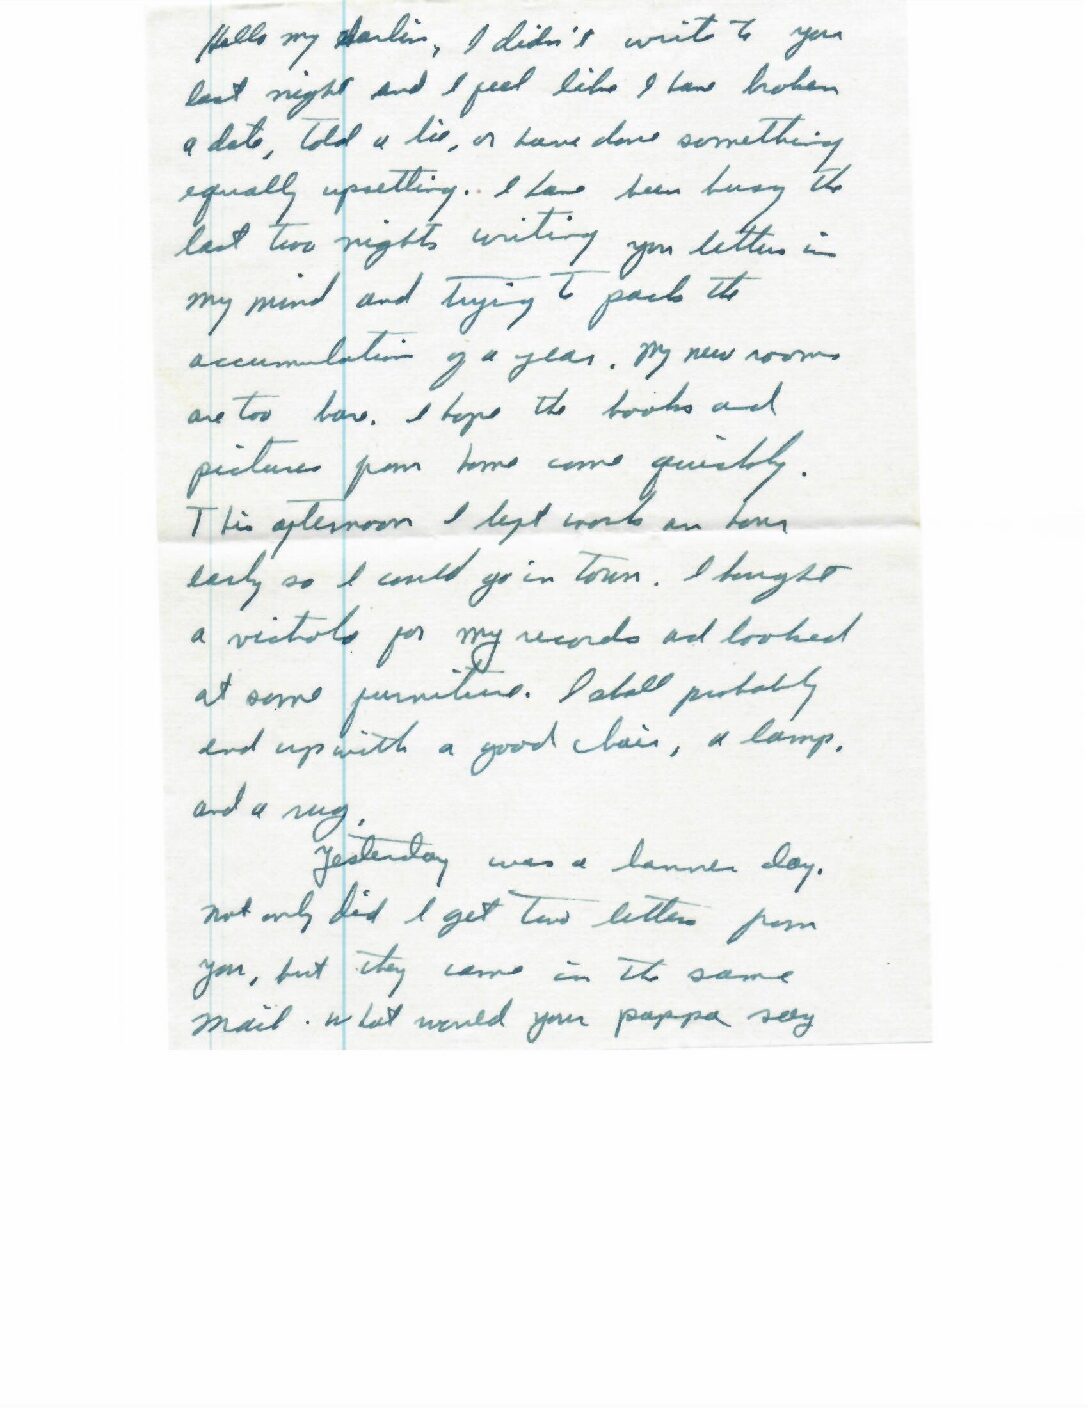 Hello my darlin, I didn't write to you
last night and I feel like I have broken
a date, told a lie, or have done something
equally upsetting.. I have been busy the
last two nights writing you letters in
my mind and trying to pack the
accumulation of a year. My new rooms
are too bare. I hope the books and
pictures from home come quickly.
This afternoon I left work an hour
early so I could go in town. I bought
a victrola for my records and looked
at some furniture. I shall probably
end up with a good chair, a lamp,
and a rug.
Yesterday was a banner day.
not only did I get two letters from
you, but they came in the same
mail. What would your pappa say